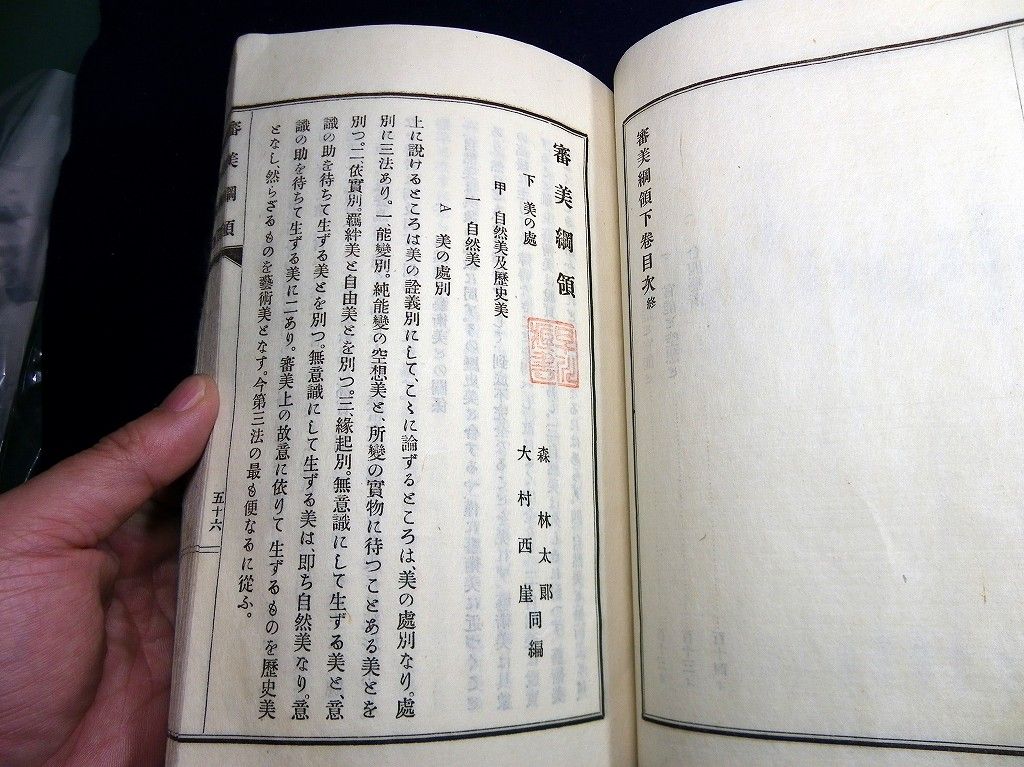 審美綱領下巻目次終
審美綱領
森林太郎
大村西崖
同編
下 美の處
甲 自然美及歷史美
一 自然美
A 美の處別
上に說けるところは美の詮義別にして、こゝに論ずるところは、美の處別なり。處
別に三法あり。一能變別。純能變の空想美と、所變の實物に待つことある美とを
別つ。二依實別。羈絆美と自由美とを別つ。三緣起別。無意識にして生ずる美と、意
識の助を待ちて生ずる美とを別つ。無意識にして生ずる美は、卽ち自然美なり。意
識の助を待ちて生ずる美に二あり。審美上の故意に依りて生ずるものを歷史美
となし、然らざるものを藝術美となす。今第三法の最も便なるに從ふ。
審美綱領
五十六